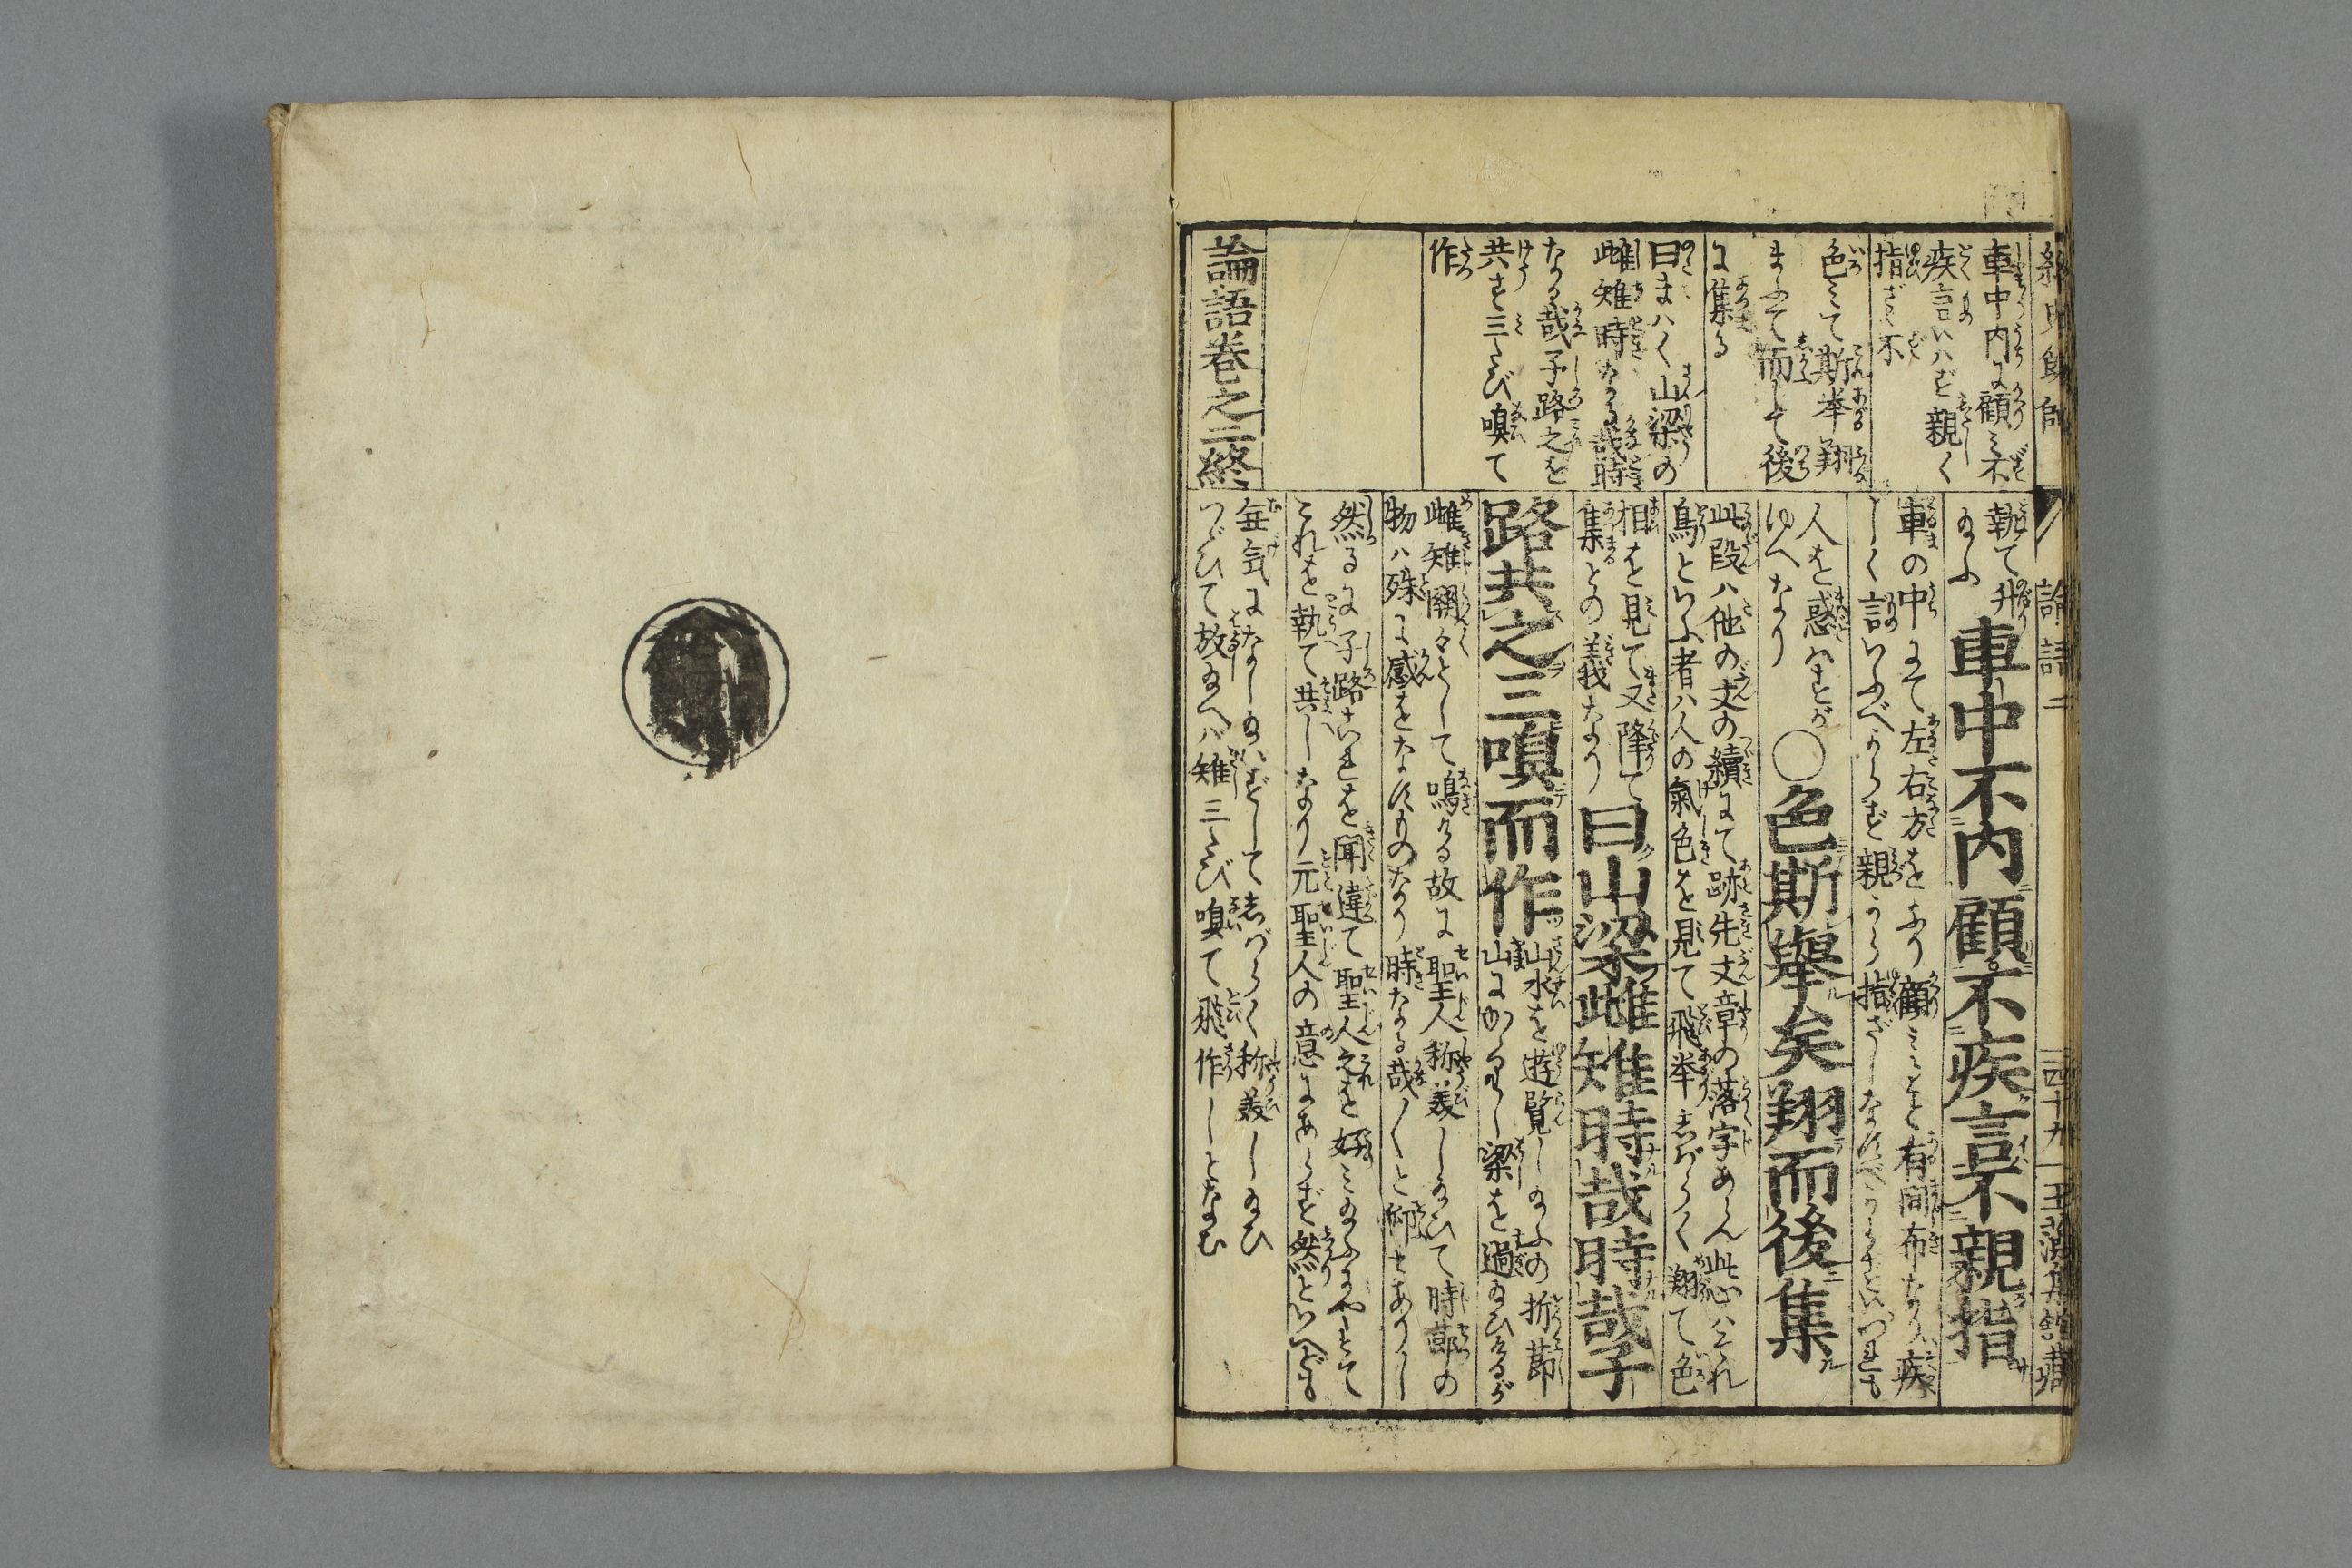 論語二
四十九
車中内に顧ミ不
疾言いハず親く
指ざゝ不
色ミて斯挙翔
まふて而して後
に集る
曰まハく山梁の
雌雉時なる哉時
なる哉子路之を
共す三たび嗅て
作
論語巻之二終
執て升り
車中不内顧不疾言不親指
車の中にて左右方をふり顧ミると
しく言いふべからず親から指ざし
人を惑ハすが
ゆへなり
○色斯擧矣翔而後集
此段ハ他の文の續にて跡先文章の落字あらん此心ハそれ
鳥といふ者ハ人の氣色を見て飛挙しばらく翔て色
相を見て又降て
集るとの義なり
曰山梁雌雉時哉時哉子
路共之三嗅而作
山水を遊覧し給ふの折節
山にかゝる梁を過給ひけるが
雌雉關々として鳴ける故に聖人称美し給ひて時節の
物ハ殊に感をなすものなり時なる哉〳〵と仰せありし
然るに子路これを聞違て聖人之を好ミ給ふにやとて
これを執て共しなり元聖人の意にあらず然といへども
毎気になし給ハずしてしばらく称美し給ひ
つひて放給へバ雉三たび嗅て飛作しとなむ